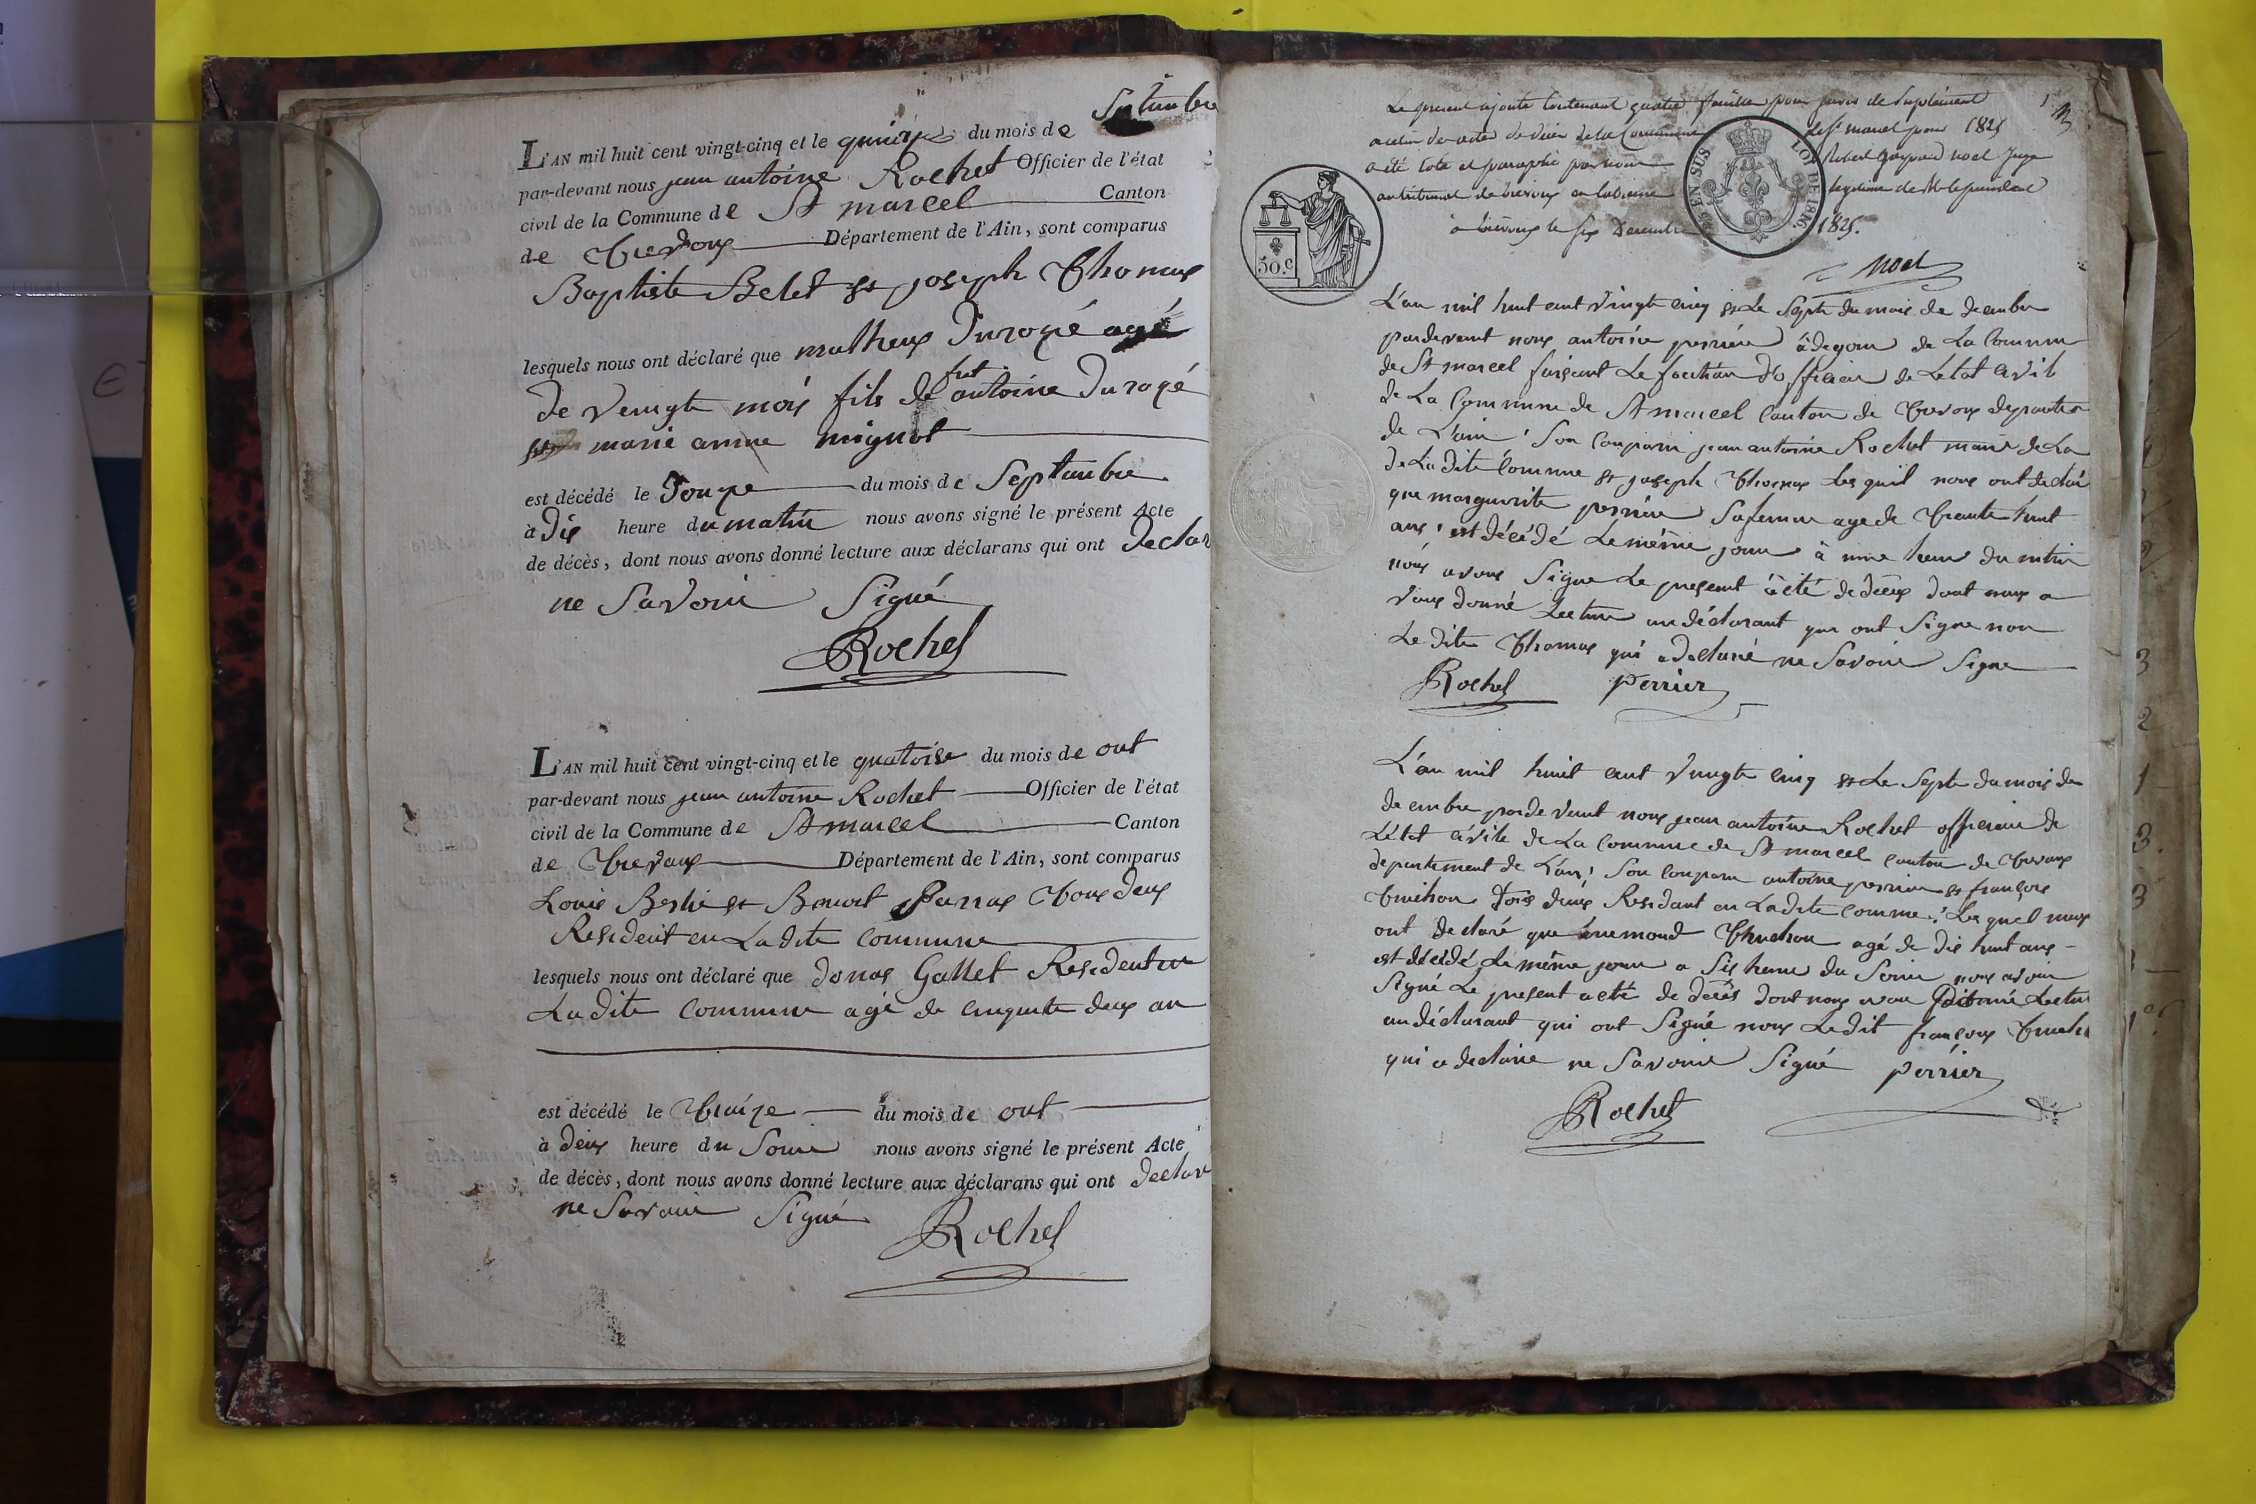 Septembre
L'AN mil huit cent vingt-cinq et le quinze du mois de
par-devant nous jean antoine Rochet Officier de l'état
civil de la Commune de St marcel Canton
de trevoux Département de l'Ain, sont comparus
Baptiste Belet et joseph thomas
lesquels nous ont déclaré que matheux Durozé agé
de veingte mois fils de fut antoine Durozé
marie anne mignot
est décédé le Douze du mois de Septembre
à Dix heure du matin nous avons signé le présent Acte
de décès, dont nous avons donné lecture aux déclarans qui ont Declar
ne Savoir Signé
Rochet
L'AN mil huit cent vingt-cinq et le quatoise du mois de out
par-devant nous jean antoine Rochet Officier de l'état
civil de la Commune de St marcel Canton
de trevoux Département de l'Ain, sont comparus
Louis et Benoit tous deux
Resident en La dite commune
lesquels nous ont déclaré que donas Gallet Resident en
La dite commune agé de cinquante deux an
est décédé le traize du mois de out
à deux heure du Soire nous avons signé le présent Acte
de décès, dont nous avons donné lecture aux déclarans qui ont Declar
ne Savoir Signé
Rochet
Le présent ajouté contenant quatre feuilles pour servir de Suplément
de St marcel pour 1825
a été coté et paraphé par nous noel juge
au tribunal de trevoux
à trévoux le six Decembre 1825.
EN SUS LOI DE 1816.
50.c
noel
L'an mil huit cent vingte cinq et Le Septe du mois de decembre
pardevant nous antoine perrier adegoin de La Commune
de St marcel faisant Le fonction d'officier de L'etat civile
de La Commune de St marcel canton de trevoux departe
de L'ain Son comparu jean antoine Rochet maire de La
de La dite Commune et joseph thomas Les quil nous ont declaré
que marguerite perrier Sa femme age de trante huit
ans est décédé Le même jour à une heur du matin
nous avons Signe Le present acté de décès dont nous a
vons donné Lecture au déclarant qui ont Signe non
Le dite thomas qui a declaré ne Savoir Signe
Rochet perrier
L'an mil huit cent vingte cinq et Le Septe du mois de
decembre pardevant nous jean antoine Rochet officier de
L'état civile de La Commune de St marcel canton de trevoux
departement de L'ain Son comparu antoine perrier et françois
tous deux Residant en La dite comme Les quel nous
ont declaré que agé de dix huit ans
est décédé Le même jour a Six heure du Soire nous avon
Signé Le present acté de décès dont nous avon donné Lectur
au déclarant qui ont Signé nous Le dit françois
qui a declaire ne Savoir Signé perrier
Rochet